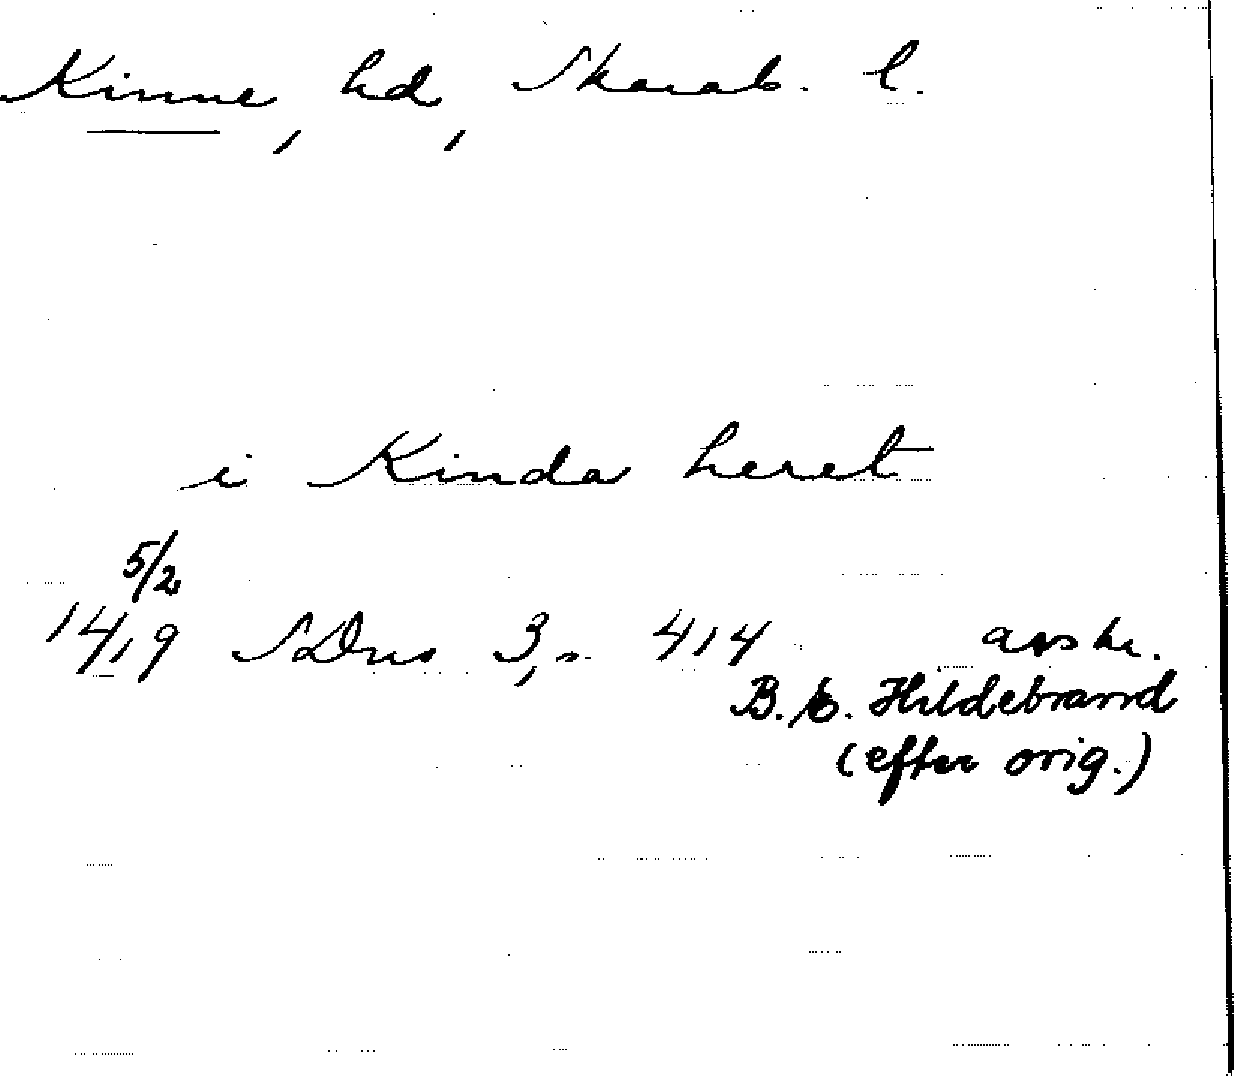 Kinne, hd, Skarab. l.
i Kinda heret
5/2
1419 SDns 3, s. 414 avskr.
B. E. Hildebrand
(efter orig.)